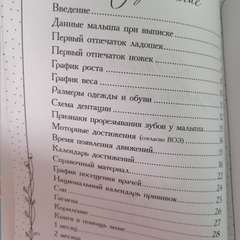 Введение
Данные малыша при выписке
Первый отпечаток ладошек
Первый отпечаток ножек
График роста
График веса
Размеры одежды и обуви
Схема дентации
Признаки прорезывания зубов у малыша
Моторные достижения (согласно ВОЗ)
Время появления движений
Календарь достижений
Справочный материал
График посещения врачей
Национальный календарь прививок
Сон
Гигиена 26
Кормление 27
Книги в помощь маме 28
1 месяц
2 месяца